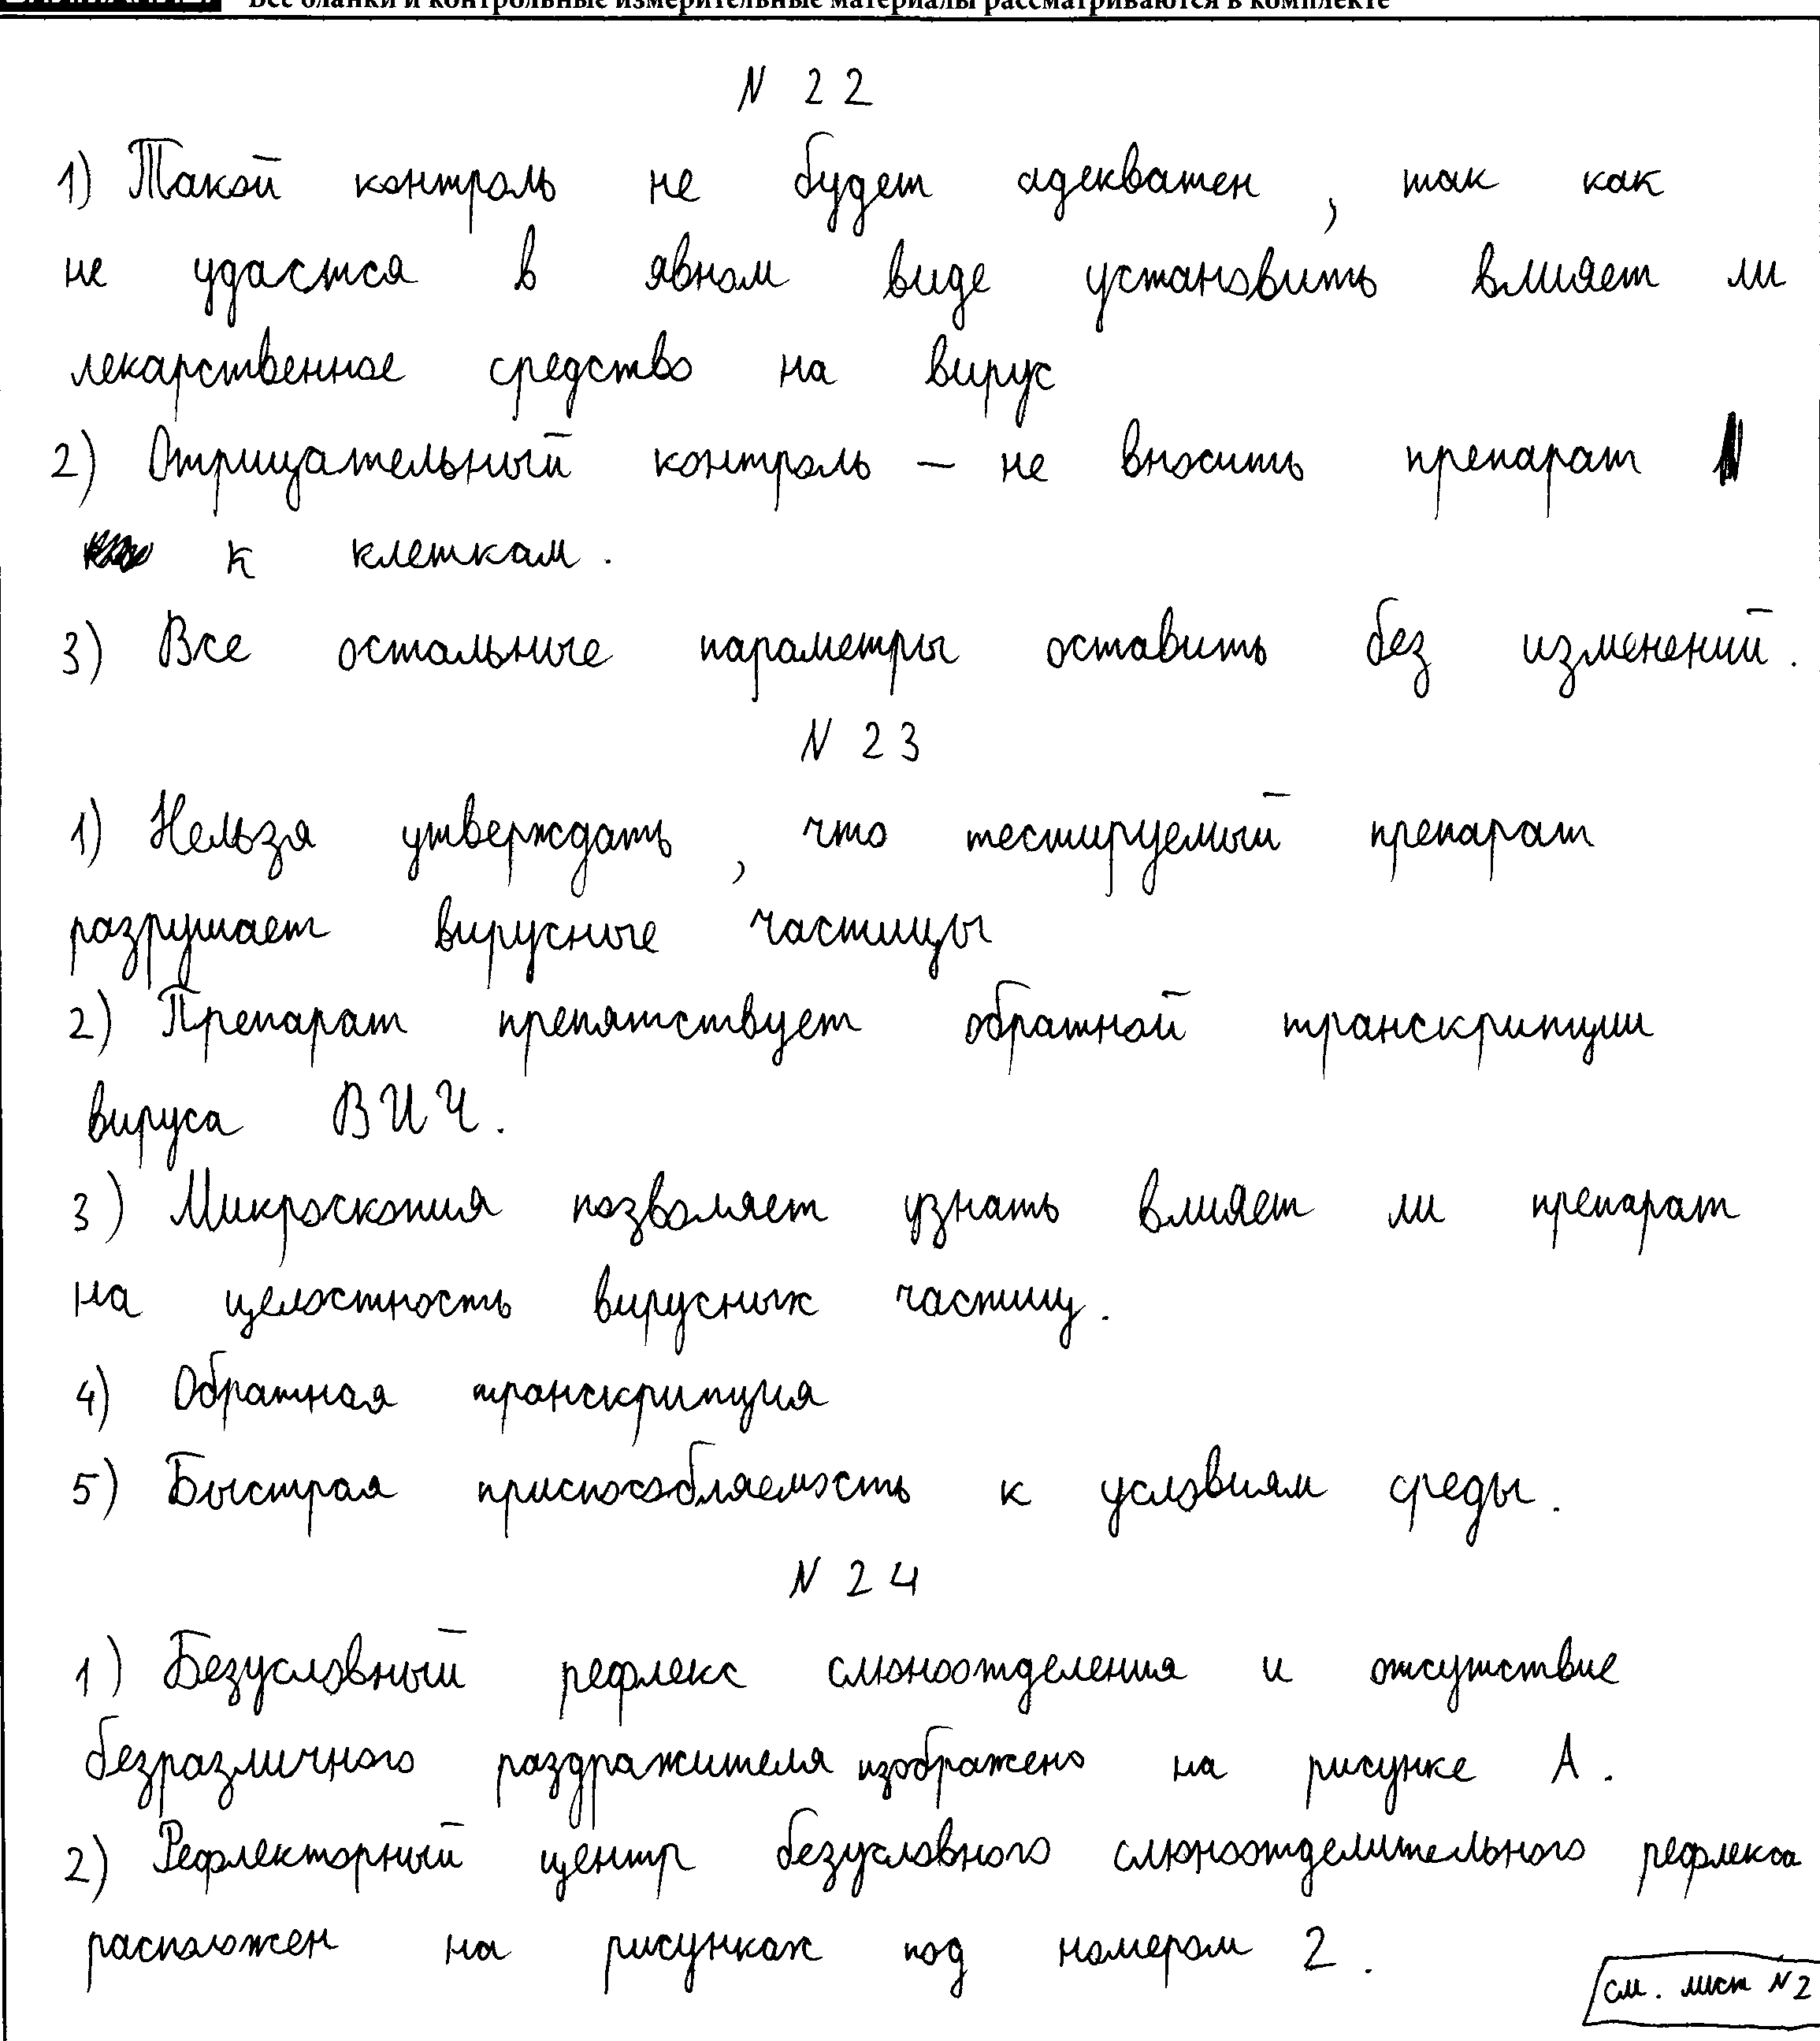 Все бланки и контрольные измерительные материалы рассматриваются в комплекте
N 22
1) Такой контроль не будет адекватен, так как
не удастся в явном виде установить влияет ли
лекарственное средство на вирус
2) Отрицательный контроль – не вносить препарат
к клеткам.
3) Все остальные параметры оставить без изменений.
N 23
1) Нельзя утверждать, что тестируемый препарат
разрушает вирусные частицы
2) Препарат препятствует обратной транскрипции
вируса ВИЧ.
3) Микроскопия позволяет узнать влияет ли препарат
на целостность вирусных частиц.
4) Обратная транскрипция
5) Быстрая приспособляемость к условиям среды.
N 24
1) Безусловный рефлекс слюноотделения и отсутствие
безразличного раздражителя изображено на рисунке А.
2) Рефлекторный центр безусловного слюноотделительного рефлекса
расположен на рисунках под номером 2.
см. лист N2